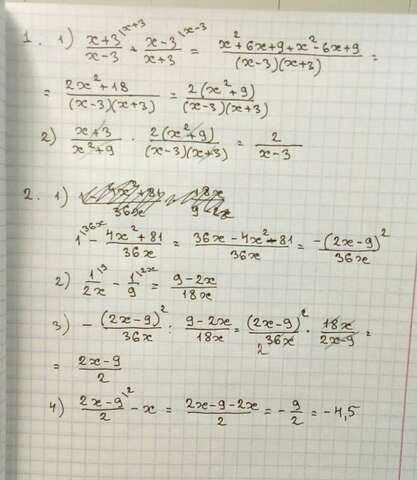 1. 1) (x+3)/(x-3) |x+3 + (x-3)/(x+3) |x-3 = (x²+6x+9+x²-6x+9)/((x-3)(x+3)) =
= (2x²+18)/((x-3)(x+3)) = 2(x²+9)/((x-3)(x+3))
2) (x+3)/(x²+9) · 2(x²+9)/((x-3)(x+3)) = 2/(x-3)
2. 1)
1 |36x - (4x²+81)/36x = (36x-4x²-81)/36x = -(2x-9)²/36x
2) 1/2x |9 - 1/9 |2x = (9-2x)/18x
3) -(2x-9)²/36x : (9-2x)/18x = (2x-9)²/36x 2 · 18x/(2x-9) =
= (2x-9)/2
4) (2x-9)/2 - x |2 = (2x-9-2x)/2 = -9/2 = -4,5